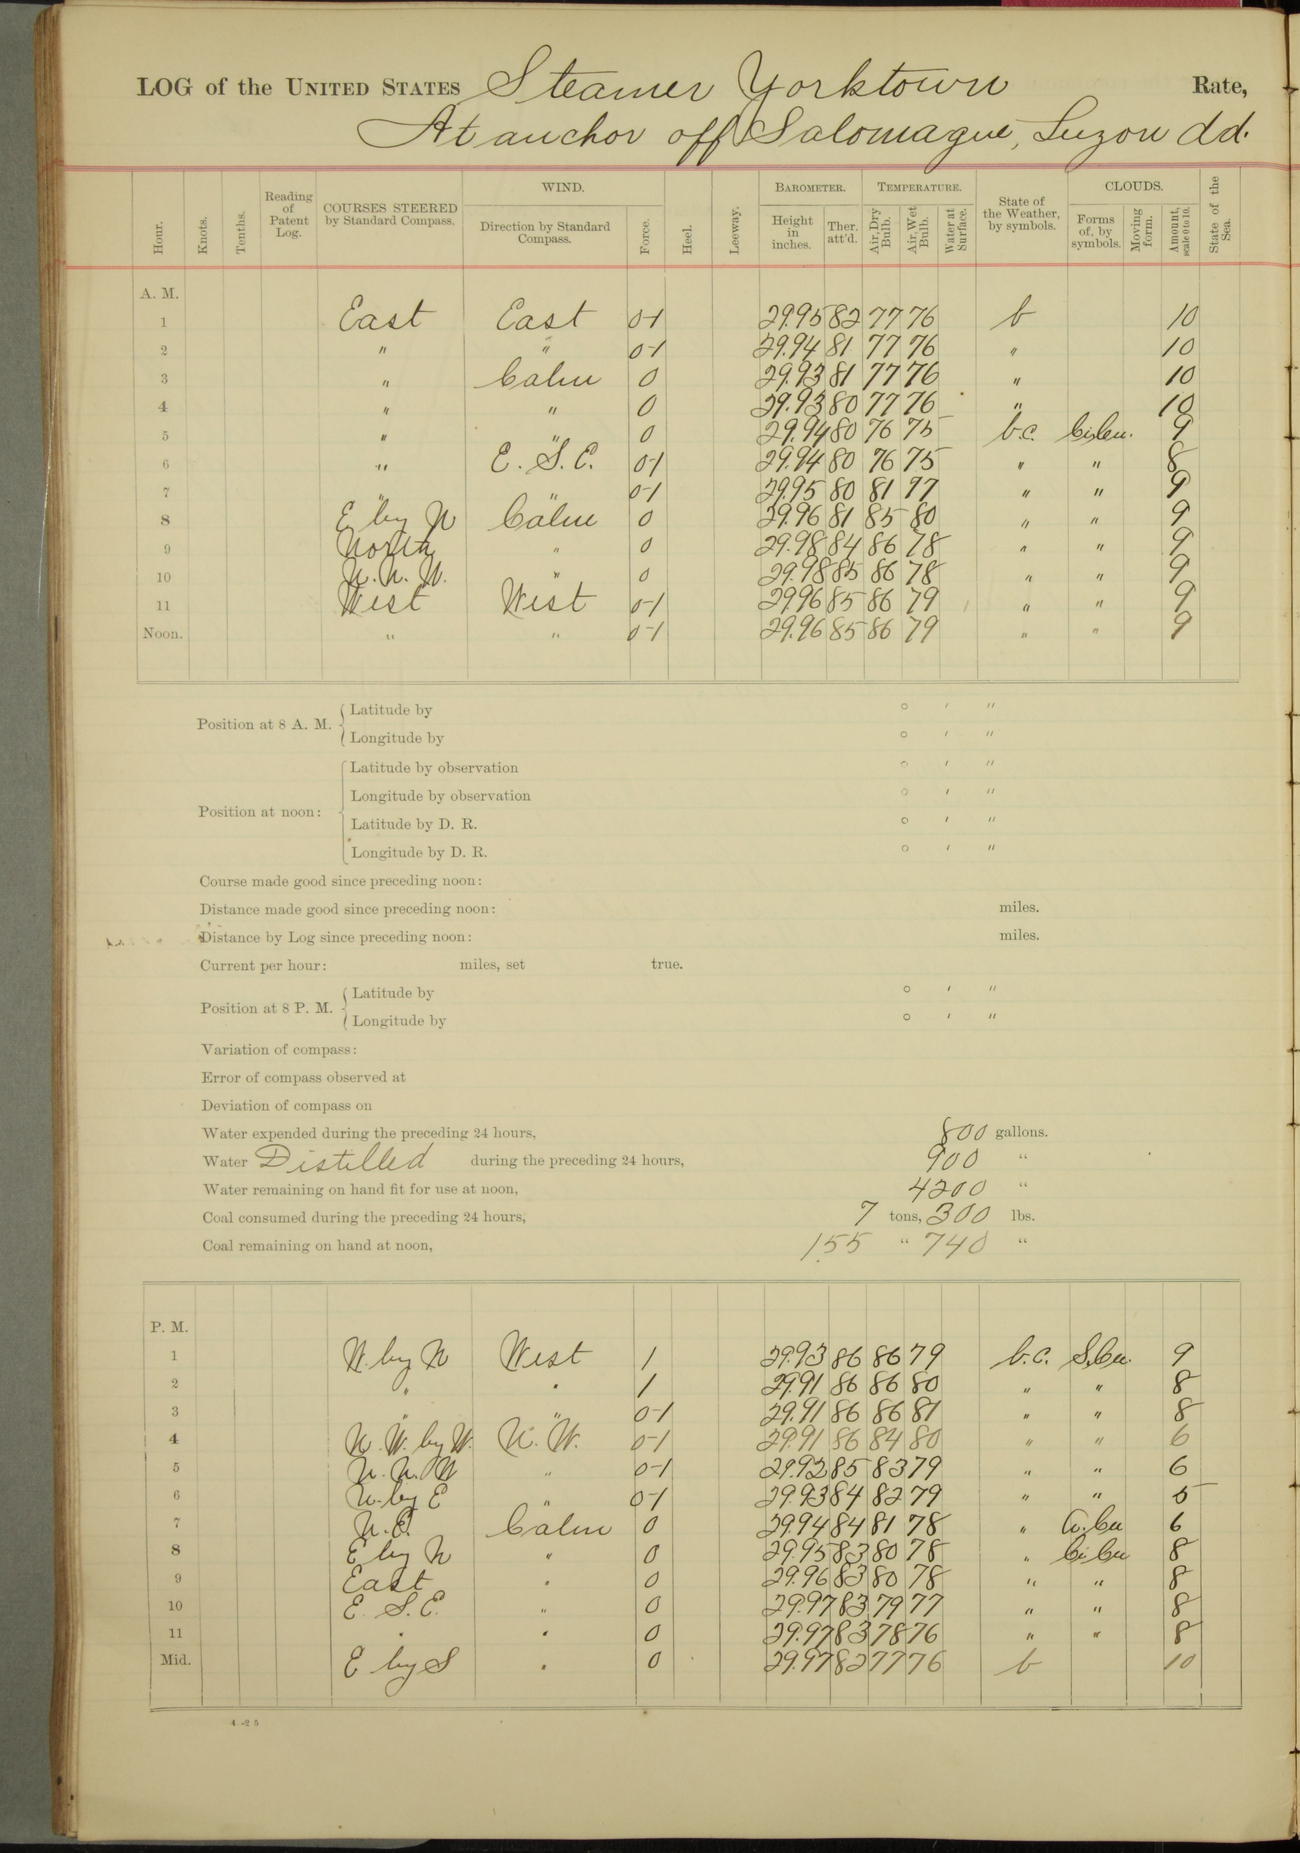 LOG of the UNITED STATES Steamer Yorktown Rate,
At anchor off Salomague, Luzon dd.
Hour. Knots. Tenths. Reading of Patent Log. COURSES STEERED by Standard Compass. WIND. Direction by Standard Compass. Force. Heel. Leeway. BAROMETER. Height in inches. Ther. att'd. TEMPERATURE. Air, Dry Bulb. Air, Wet Bulb. Water at Surface. State of the Weather, by symbols. CLOUDS. Forms of, by symbols. Moving form. Amount, scale 0 to 10. State of the Sea.
A. M.
1 East East 0-1 29.95 82 77 76 b 10
2 " " 0-1 29.94 81 77 76 " 10
3 " Calm 0 29.93 81 77 76 " 10
4 " " 0 29.93 80 77 76 " 10
5 " " 0 29.94 80 76 75 b.c. Ci.Cu. 9
6 " E. S. E. 0-1 29.94 80 76 75 " " 8
7 " " 0-1 29.95 80 81 77 " " 9
8 E by N Calm 0 29.96 81 85 80 " " 9
9 North " 0 29.98 84 86 78 " " 9
10 N. N. W. " 0 29.98 85 86 78 " " 9
11 West West 0-1 29.96 85 86 79 " " 9
Noon. " " 0-1 29.96 85 86 79 " " 9
Position at 8 A. M. Latitude by ° ′ ″
Longitude by ° ′ ″
Position at noon: Latitude by observation ° ′ ″
Longitude by observation ° ′ ″
Latitude by D. R. ° ′ ″
Longitude by D. R. ° ′ ″
Course made good since preceding noon:
Distance made good since preceding noon: miles.
Distance by Log since preceding noon: miles.
Current per hour: miles, set true.
Position at 8 P. M. Latitude by ° ′ ″
Longitude by ° ′ ″
Variation of compass:
Error of compass observed at
Deviation of compass on
Water expended during the preceding 24 hours, 800 gallons.
Water Distilled during the preceding 24 hours, 900 "
Water remaining on hand fit for use at noon, 4200 "
Coal consumed during the preceding 24 hours, 7 tons, 300 lbs.
Coal remaining on hand at noon, 155 " 740 "
P. M.
1 W. by N West 1 29.93 86 86 79 b.c. S.Cu. 9
2 " " 1 29.91 86 86 80 " " 8
3 " " 0-1 29.91 86 86 81 " " 8
4 N. W. by W. N. W. 0-1 29.91 86 84 80 " " 6
5 N. N. W " 0-1 29.92 85 83 79 " " 6
6 N. by E " 0-1 29.93 84 82 79 " " 5
7 N. E. Calm 0 29.94 84 81 78 " a. Cu 6
8 E by N " 0 29.95 83 80 78 " Ci Cu 8
9 East " 0 29.96 83 80 78 " " 8
10 E. S. E. " 0 29.97 83 79 77 " " 8
11 " " 0 29.97 83 78 76 " " 8
Mid. E by S " 0 29.97 82 77 76 b 10
4-25